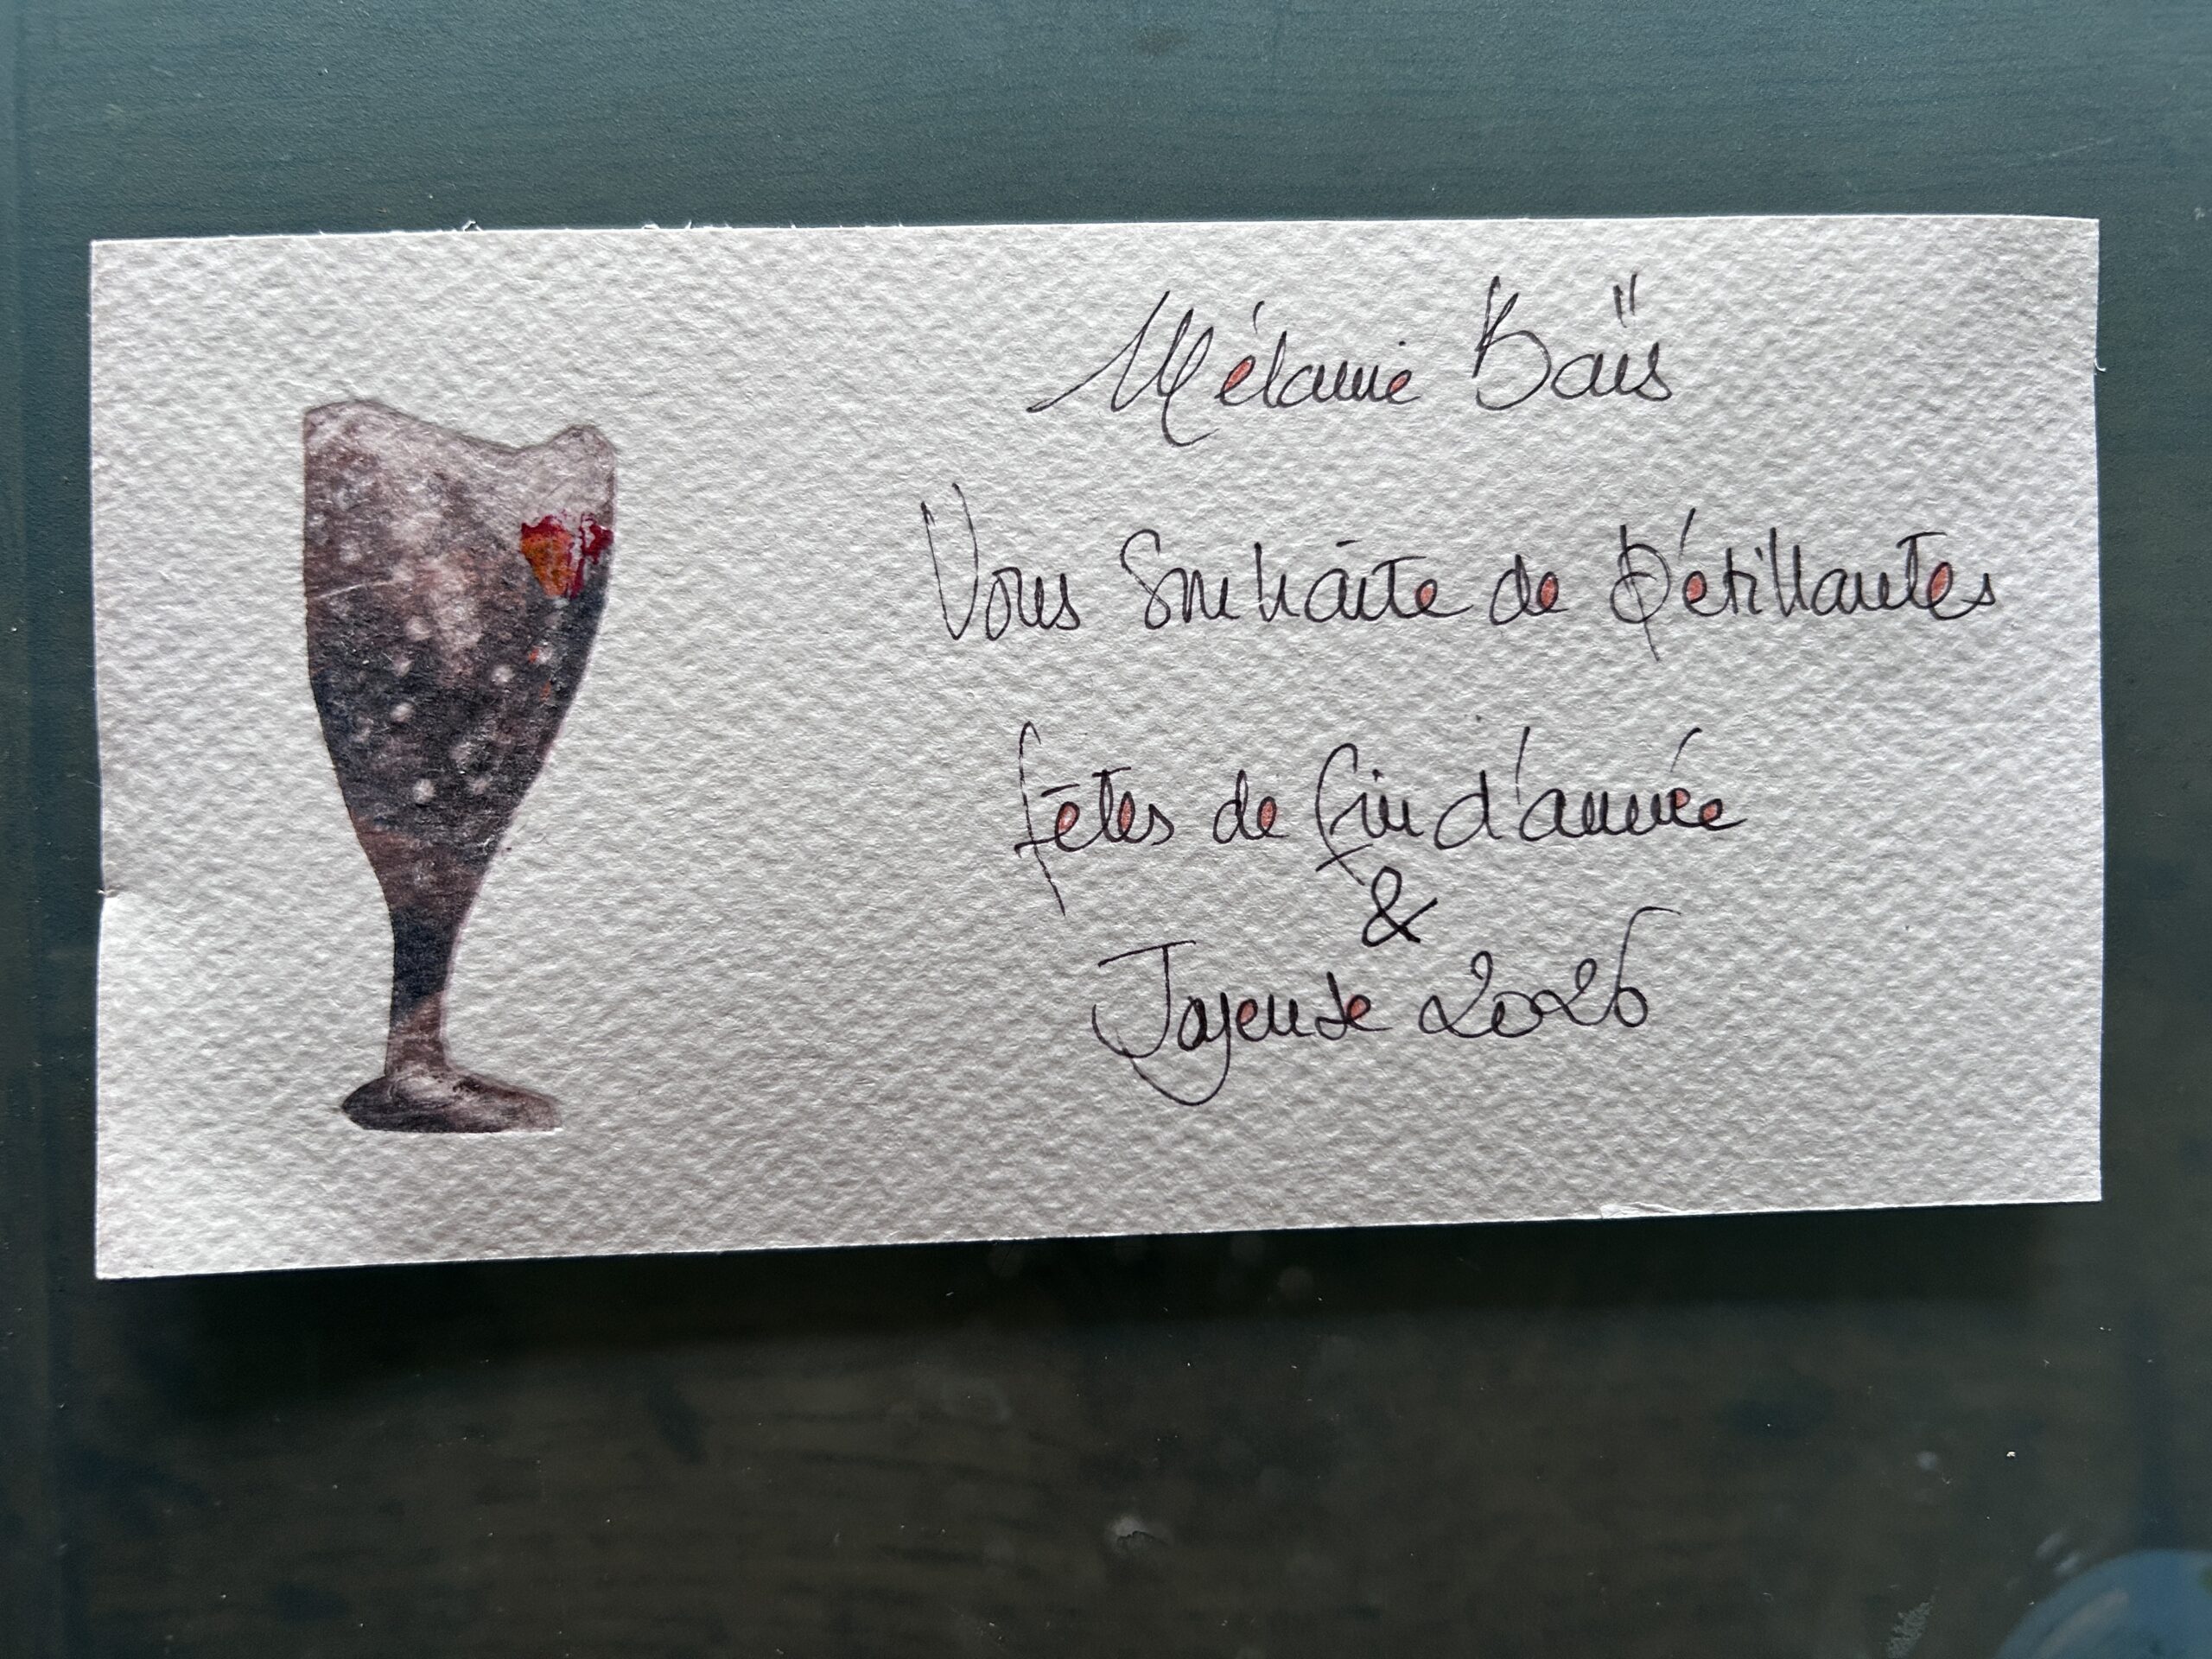 Mélanie Baïs
Vous Souhaite de Pétillantes
fêtes de fin d'année
&
Joyeuse 2026